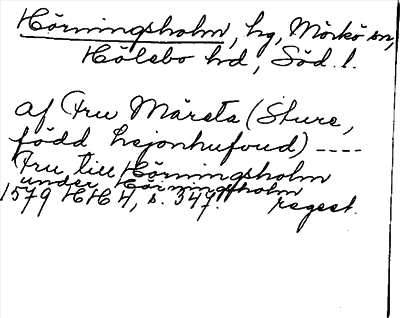 Hörningsholm, hg, Mörkö sn,
Hölebo hd, Söd. l.
af Fru Märeta (Sture,
född Lejonhufvud) ----
Fru till Hörningsholm
under Hörningsholm
1579 HH 4, s. 349. regest.